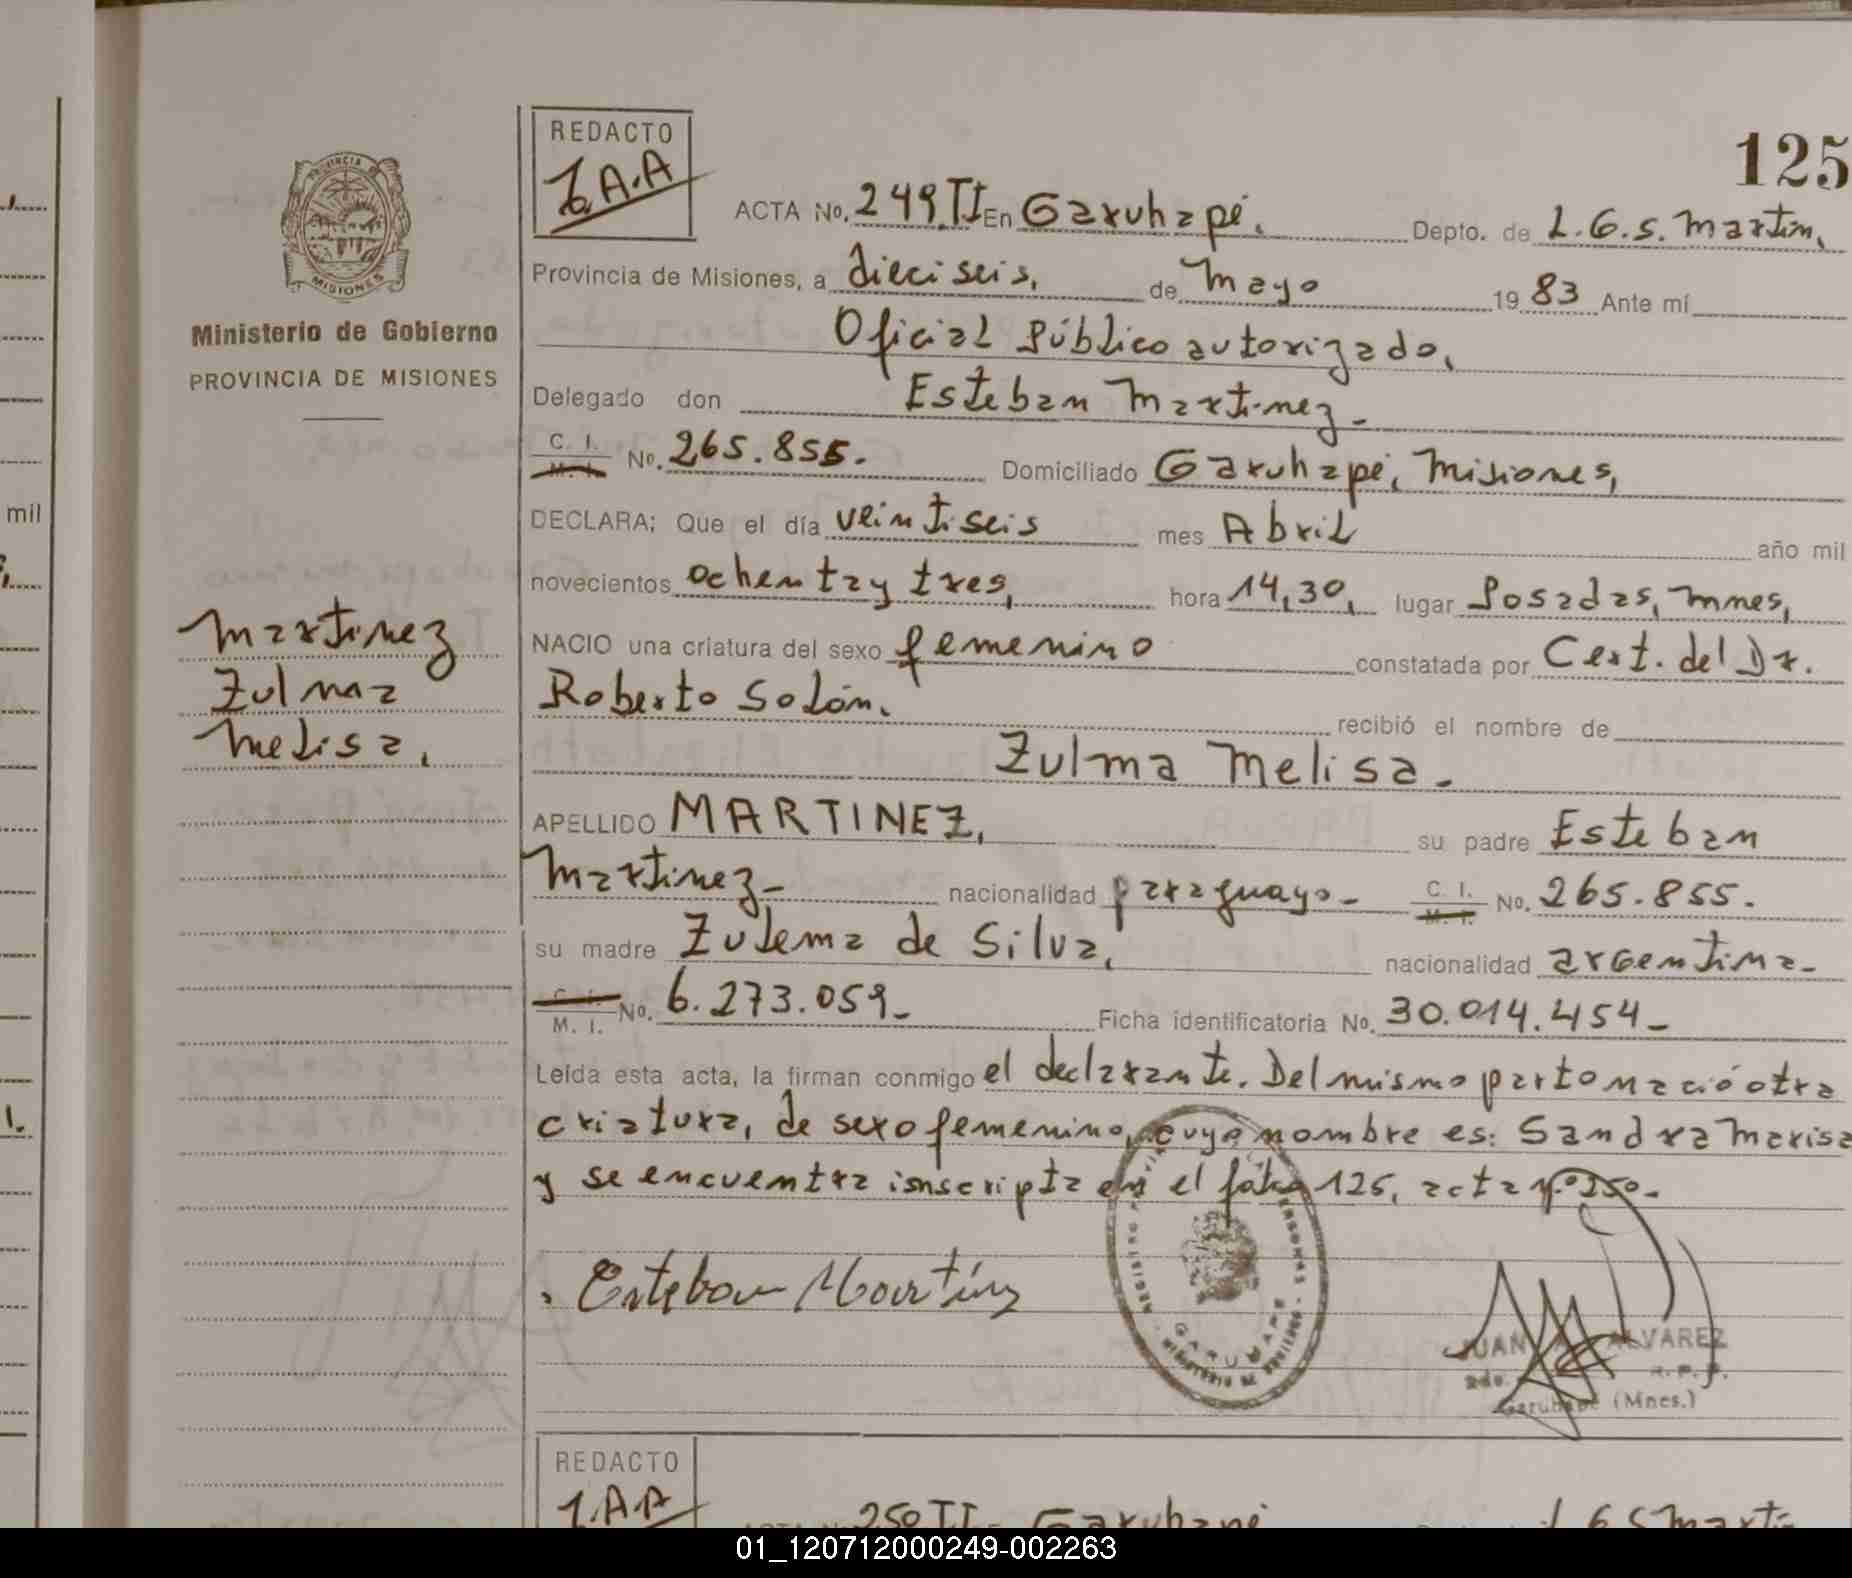 125
REDACTO
J.A.A
ACTA No. 249 TI En Garuhapé, Depto. de L.G.S. Martín,
Provincia de Misiones, a dieciseis, de Mayo 19 83 Ante mí
Oficial Público autorizado,
Delegado don Esteban Martinez-
C. I. M. I. No. 265.855. Domiciliado Garuhapé, Misiones,
DECLARA; Que el día veintiseis mes Abril año mil
novecientos ochenta y tres, hora 14,30, lugar Posadas, Mnes,
NACIO una criatura del sexo femenino constatada por Cert. del Dr.
Roberto Solón. recibió el nombre de
Zulma Melisa.
APELLIDO MARTINEZ, su padre Esteban
Martinez- nacionalidad paraguayo- C. I. M. I. No. 265.855.
su madre Zulema de Silva, nacionalidad argentina-
C. I. M. I. No. 6.273.059- Ficha identificatoria No. 30.014.454-
Leída esta acta, la firman conmigo el declarante. Del mismo parto nació otra
criatura, de sexo femenino, cuyo nombre es: Sandra Marisa
y se encuentra inscripta en el folio 125, acta nº 250-
Esteban Martínez
GARUHAPE
JUAN ALVAREZ
R.P.P.
Garuhapé (Mnes.)
PROVINCIA
MISIONES
Ministerio de Gobierno
PROVINCIA DE MISIONES
Martinez
Zulma
Melisa,
mil
REDACTO
J.A.A
ACTA No. 250 TI En Garuhapé L G S Martín
01_120712000249-002263